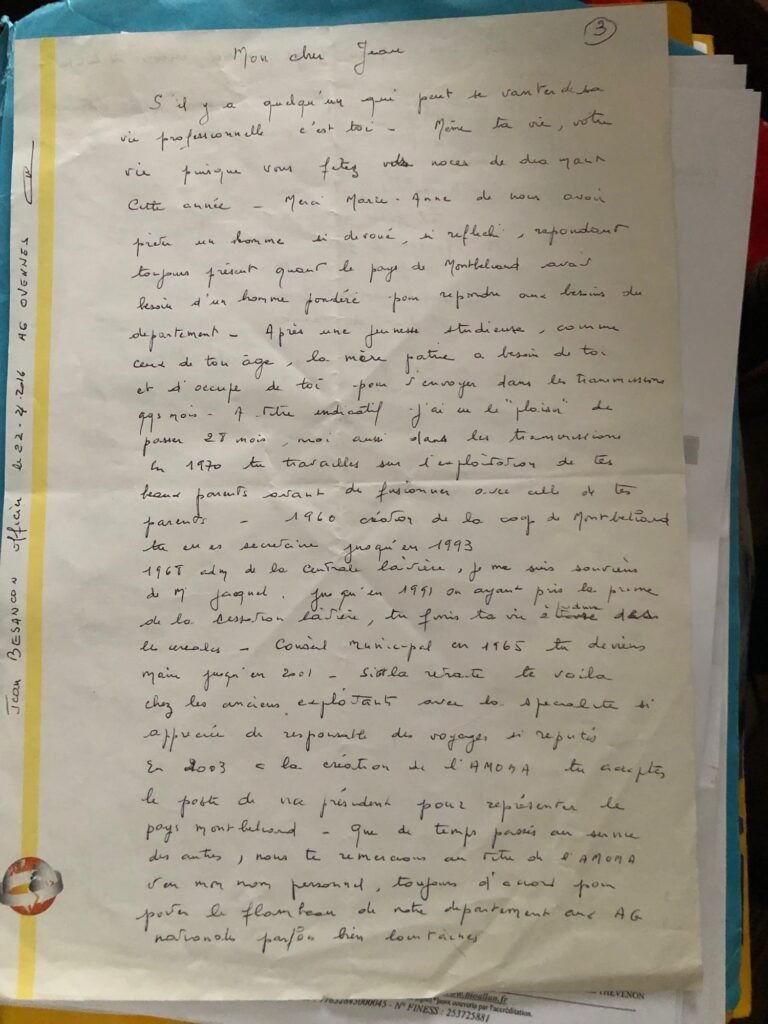 3
Mon cher Jean
S'il y a quelqu'un qui peut se vanter de sa
vie professionnelle c'est toi - Même ta vie, votre
vie puisque vous fetez vos noces de diamant
Cette année - Merci Marie-Anne de nous avoir
prété un homme si devoué, si reflechi, repondant
toujours présent quant le pays de Montbeliard avait
besoin d'un homme pondéré pour repondre aux besoins du
departement - Après une jeunesse studieuse, comme
ceux de ton âge, la mère patrie a besoin de toi
et s'occupe de toi pour t'envoyer dans les transmissions
qqs mois - A titre indicatif j'ai eu le "plaisir" de
passer 28 mois, moi aussi dans les transmissions
En 1970 tu travailles sur l'exploitation de tes
beaux parents avant de fusionner avec celle de tes
parents - 1960 création de la coop de Montbeliard
tu en es secretaire jusqu'en 1993
1968 adm de la centrale laitière, je me suis souviens
de Mr Jacquel. jusqu'en 1991 ou ayant pris la prime
de la cessation laitière, tu finis ta vie
le cereales - Conseil Municipal en 1965 tu deviens
maire jusqu'en 2001 - Sitot la retraite te voila
chez les anciens exploitants avec la specialité si
appreciée de responsable des voyages si reputés
En 2003 a la création de l'AMOMA tu acceptes
le poste de vice président pour représenter le
pays montbeliard - Que de temps passés au service
des autres, nous te remercions au titre de l'AMOMA
en mon nom personnel, toujours d'accord pour
porter le flambeau de notre departement aux AG
nationales parfois bien lointaines
Jean BESANCON officier le 22-4/2016 AG OVENNES
www.bioallan.fr
par l'accréditation.
77832845000045 - N° FINESS : 253725881
THEVENON